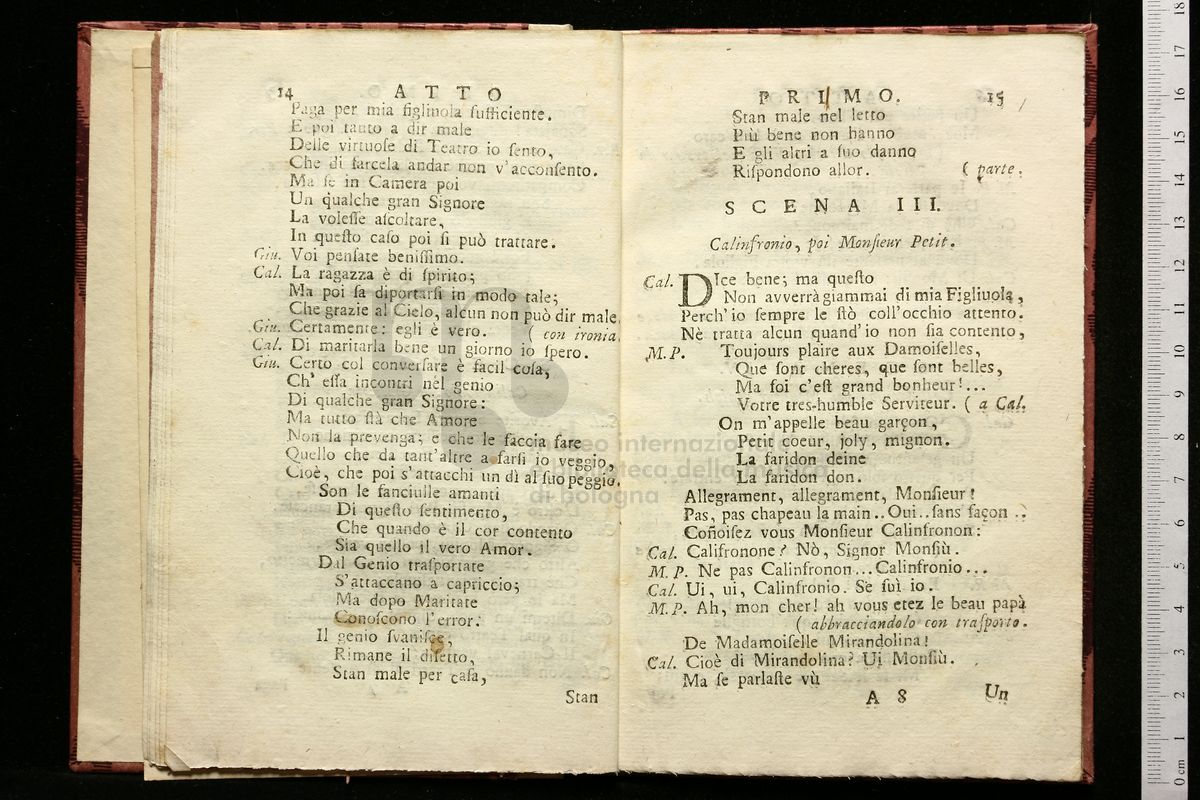 14 ATTO
Paga per mia figlinola ſufficiente.
E poi tanto a dir male
Delle virtuoſe di Teatro io ſento,
Che di farcela andar non v'acconſento.
Ma ſe in Camera poi
Un qualche gran Signore
La voleſſe aſcoltare,
In queſto caſo poi ſi può trattare.
Giu. Voi penſate beniſſimo.
Cal. La ragazza è di ſpirito;
Ma poi ſa diportarſi in modo tale;
Che grazie al Cielo, alcun non può dir male.
Giu. Certamente: egli è vero. ( con ironia.
Cal. Di maritarla bene un giorno io ſpero.
Giu. Certo col converſare è facil coſa,
Ch' eſſa incontri nel genio
Di qualche gran Signore:
Ma tutto ſtà che Amore
Non la prevenga; e che le faccia fare
Quello che da tant'altre a farſi io veggio,
Cioè, che poi s'attacchi un dì al ſuo peggio.
Son le fanciulle amanti
Di queſto ſentimento,
Che quando è il cor contento
Sia quello il vero Amor.
Dal Genio traſportate
S'attaccano a capriccio;
Ma dopo Maritate
Conoſcono l'error.
Il genio ſvaniſce;
Rimane il difetto,
Stan male per caſa,
Stan
PRIMO. 15
Stan male nel letto
Più bene non hanno
E gli altri a ſuo danno
Riſpondono allor. ( parte.
SCENA III.
Calinfronio, poi Monſieur Petit.
Cal. DIce bene; ma queſto
Non avverrà giammai di mia Figliuola,
Perch'io ſempre le ſtò coll'occhio attento.
Nè tratta alcun quand'io non ſia contento,
M. P. Toujours plaire aux Damoiſelles,
Que ſont cheres, que ſont belles,
Ma foi c'eſt grand bonheur!...
Votre tres-humble Serviteur. ( a Cal.
On m'appelle beau garçon,
Petit coeur, joly, mignon.
La faridon deine
La faridon don.
Allegrament, allegrament, Monſieur!
Pas, pas chapeau la main.. Oui.. ſans façon..
Coñoiſez vous Monſieur Calinfronon:
Cal. Califronone? Nò, Signor Monſiù.
M. P. Ne pas Calinfronon... Calinfronio...
Cal. Ui, ui, Calinfronio. Se ſuì io.
M. P. Ah, mon cher! ah vous etez le beau papà
( abbracciandolo con traſporto.
De Madamoiſelle Mirandolina!
Cal. Cioè di Mirandolina? Ui Monſiù.
Ma ſe parlaſte vù
A 8 Un
museo internazionale
biblioteca della musica
di bologna
0 cm 1 2 3 4 5 6 7 8 9 10 11 12 13 14 15 16 17 18